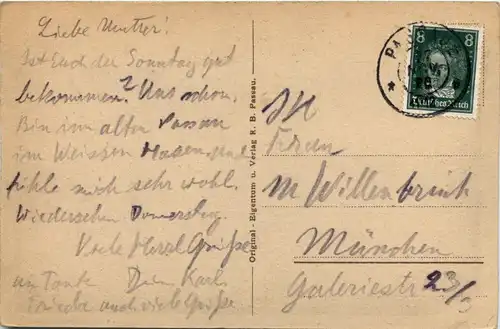 Liebe Mutter!
Ist Euch der Sonntag gut
bekommen? Uns schon.
Bin im alten Passau
im Weissen Hasen und
fühle mich sehr wohl.
Wiedersehen Donnerstag.
Viele Herzl Grüße
an Tante Dein Karl
auch viele Grüße
Original - Eigentum u. Verlag R. B. Passau.
8 8
Deutsches Reich
Frau
M Willenbrink
München
Galeriestr 23/3